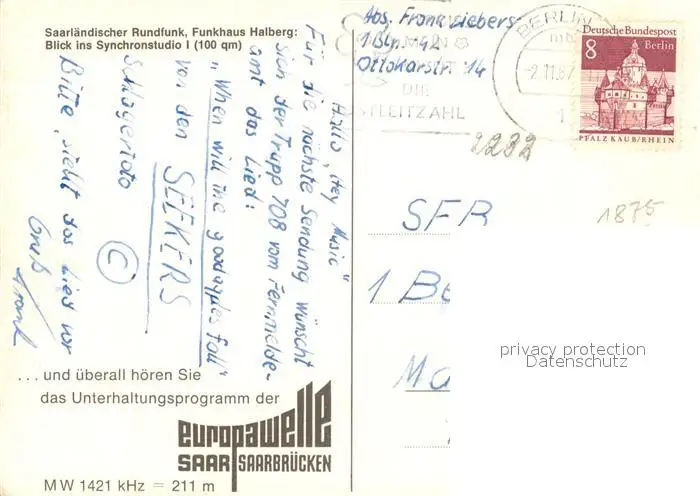 Saarländischer Rundfunk, Funkhaus Halberg:
Blick ins Synchronstudio I (100 qm)
Hallo, "Hey Music"
Für die nächste Sendung wünscht
sich der Trupp 708 vom Fernmelde-
amt das Lied:
"When will the goodapples fall"
von den SEEKERS
Schlagertoto
C
Bitte, stellt das Lied vor
Gruß
Frank
... und überall hören Sie
das Unterhaltungsprogramm der
europawelle
SAAR SAARBRÜCKEN
MW 1421 kHz = 211 m
Abs. Frank Ziebers
1 Bln. 42
Ottokarstr. 14
DIE
BERLIN
-2.11.67
1
Deutsche Bundespost
8 Berlin
PFALZ KAUB/RHEIN
2232
1875
SFB
1 Be
Ma
privacy protection
Datenschutz